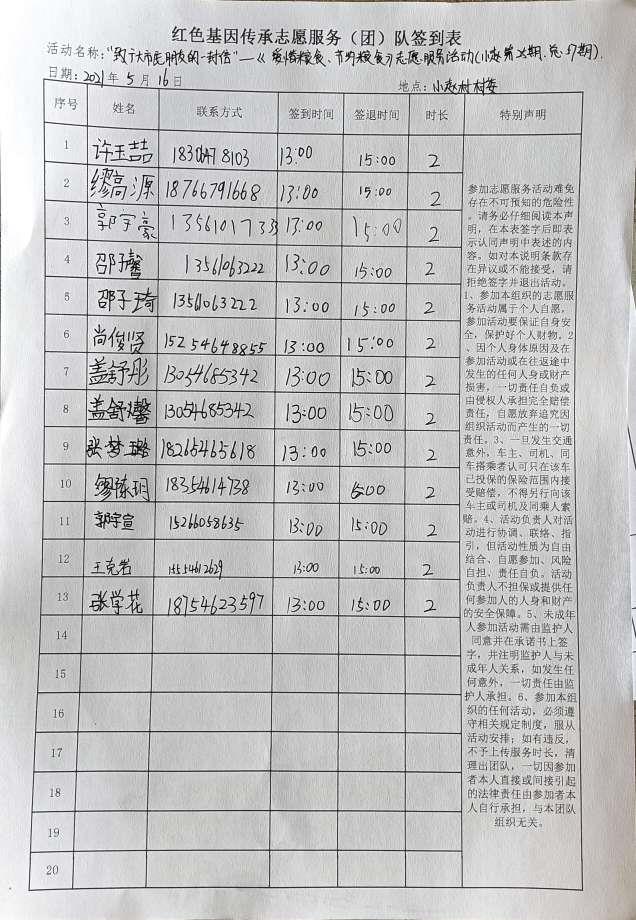 红色基因传承志愿服务（团）队签到表
活动名称："致广大市民朋友的一封信"—《爱惜粮食、节约粮食》志愿服务活动(小赵 第 期、总 期).
日期：2021年 5月 16日
地点：小赵村村委
序号 姓名 联系方式 签到时间 签退时间 时长 特别声明
1 许玉喆 13:00 15:00 2
2 缪高源 18766791668 13:00 15:00 2
3 郭宇豪 13561017333 13:00 15:00 2
4 邵子馨 13561063222 13:00 15:00 2
5 邵子琦 13561063222 13:00 15:00 2
6 尚俊贤 15254648855 13:00 15:00 2
7 盖舒彤 13054685342 13:00 15:00 2
8 盖舒馨 13054685342 13:00 15:00 2
9 张梦璐 18265465618 13:00 15:00 2
10 缪 玥 18354614738 13:00 15:00 2
11 郭宇宣 15266058635 13:00 15:00 2
12 王克岩 15554612629 13:00 15:00 2
13 张学花 18754623597 13:00 15:00 2
14
15
16
17
18
19
20
参加志愿服务活动难免
存在不可预知的危险性
。请务必仔细阅读本声
明，在本表签字后即表
示认同声明中表述的内
容。如对本说明条款存
在异议或不能接受，请
拒绝签字并退出活动。
1、参加本组织的志愿服
务活动属于个人自愿，
参加活动要保证自身安
全，保护好个人财物。2
、因个人身体原因及在
参加活动或在往返途中
发生的任何人身或财产
损害，一切责任自负或
由侵权人承担完全赔偿
责任，自愿放弃追究因
组织活动而产生的一切
责任。3、一旦发生交通
意外，车主、司机、同
车搭乘者认可只在该车
已投保的保险范围内接
受赔偿，不得另行向该
车主或司机及同乘人索
赔。4、活动负责人对活
动进行协调、联络、指
引，但活动性质为自由
结合、自愿参加、风险
自担、责任自负。活动
负责人不担保或提供任
何参加人的人身和财产
的安全保障。5、未成年
人参加活动需由监护人
同意并在承诺书上签
字，并注明监护人与未
成年人关系，如发生任
何意外，一切责任由监
护人承担。6、参加本组
织的任何活动，必须遵
守相关规定制度，服从
活动安排；如有违反，
不予上传服务时长，清
理出团队，一切因参加
者本人直接或间接引起
的法律责任由参加者本
人自行承担，与本团队
组织无关。